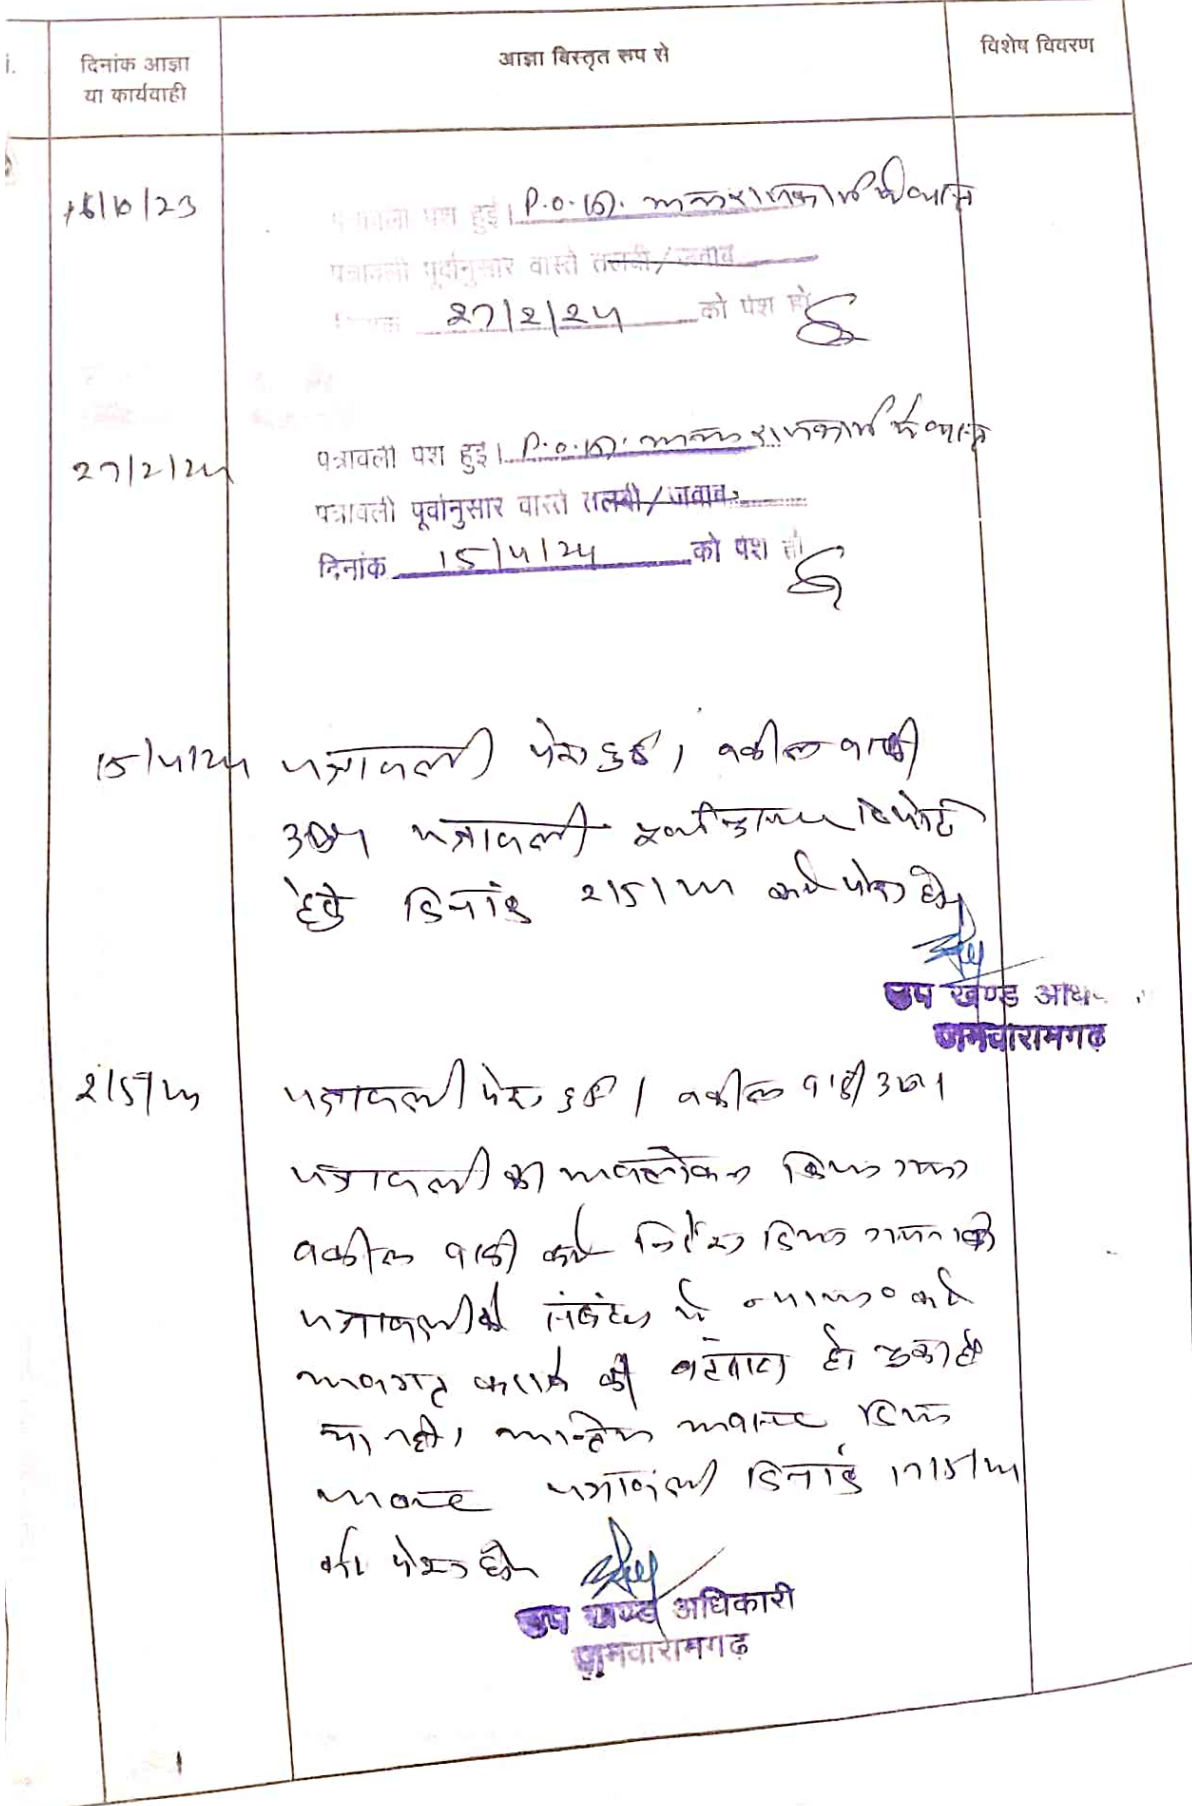 दिनांक आज्ञा
या कार्यवाही
आज्ञा विस्तृत रूप से
विशेष विवरण
16/10/23
पत्रावली पेश हुई। P.O. अन्य राजकार्य में व्यस्त
पत्रावली पूर्वानुसार वास्ते तलबी/जवाब
27/2/24 को पेश हो
27/2/24
पत्रावली पेश हुई। P.O. अन्य राजकार्य में व्यस्त
पत्रावली पूर्वानुसार वास्ते तलबी/जवाब
दिनांक 15/4/24 को पेश हो
15/4/24 पत्रावली पेश हुई। वकील वादी
उप० पत्रावली रिपोर्ट
हेतु दिनांक 2/5/24 को पेश हो
उप खण्ड अधि
जमवारामगढ़
2/5/24 पत्रावली पेश हुई। वकील वादी उप०।
पत्रावली का अवलोकन किया गया
वकील वादी को निर्देश दिया गया कि
पत्रावली के संबंध में न्याया० को
अवगत करावे की बंटवारा हो चुका है
या नहीं। अन्तिम अवसर दिया
पत्रावली दिनांक 17/5/24
को पेश हो
उप खण्ड अधिकारी
जमवारामगढ़